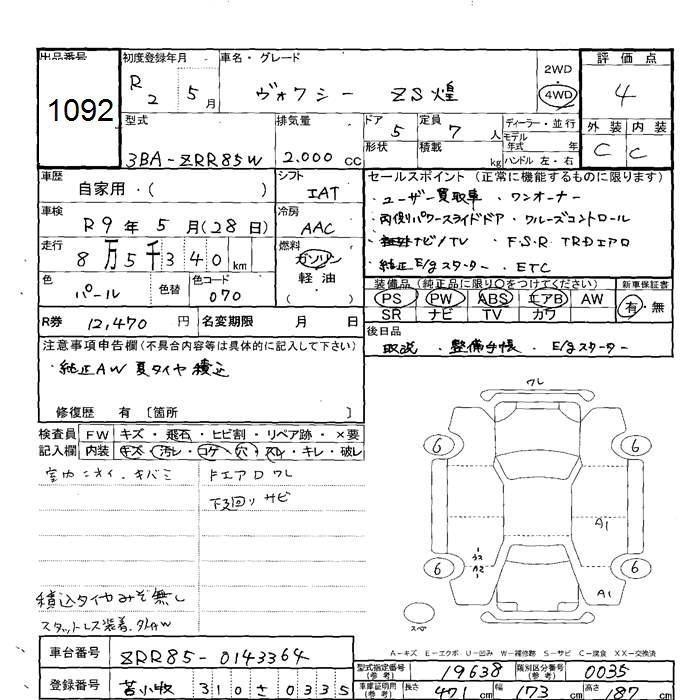 出品番号
1092
初度登録年月
R 2 5月
車名・グレード
ヴォクシー ZS煌
2WD
4WD
評価点
4
外装 内装
C C
型式
3BA-ZRR85W
排気量
2.000 cc
ドア
5
形状
定員
7 人
積載
kg
ディーラー・並行
モデル年式 年式
ハンドル 左・右
車歴
自家用・( )
シフト
IAT
車検
R9年5月(28日)
冷房
AAC
走行
8万5千340km
燃料
ガソリン
軽油
( )
色
パール
色替
色コード
070
R券 12,470 円
名変期限 月 日
セールスポイント (正常に機能するものに限ります)
・ユーザー買取車 ・ワンオーナー
・両側パワースライドドア ・クルーズコントロール
ナビ/TV ・F.S.R TRDエアロ
・純正E/gスターター ・ETC
装備品(純正品に限り○をつけてください)
PS PW ABS エアB AW
SR ナビ TV カワ
新車保証書
有・無
後日品
取説 . 整備手帳 . E/gスターター
注意事項申告欄(不具合内容等は具体的に記入して下さい)
・純正AW 夏タイヤ積込
修復歴 有 〔箇所 〕
検査員記入欄
FW キズ・飛石・ヒビ割・リペア跡・×要
内装 キズ・汚レ・コゲ・穴・スレ・キレ・破レ
室内ニオイ.キバミ
Fエアロワレ
下回りサビ
積込タイヤみぞ無し
スタットレス装着.
ワレ
6 6
6 6
A1
A1
スペ
A-キズ E-エクボ U-凹み W-補修跡 S-サビ C-腐食 XX-交換済
車台番号 ZRR85-0143364
登録番号 苫小牧 310さ0335
型式指定番号(参考) 19638
類別区分番号(参考) 0035
車庫証明用(参考) 長さ 471 cm 幅 173 cm 高さ 187 cm